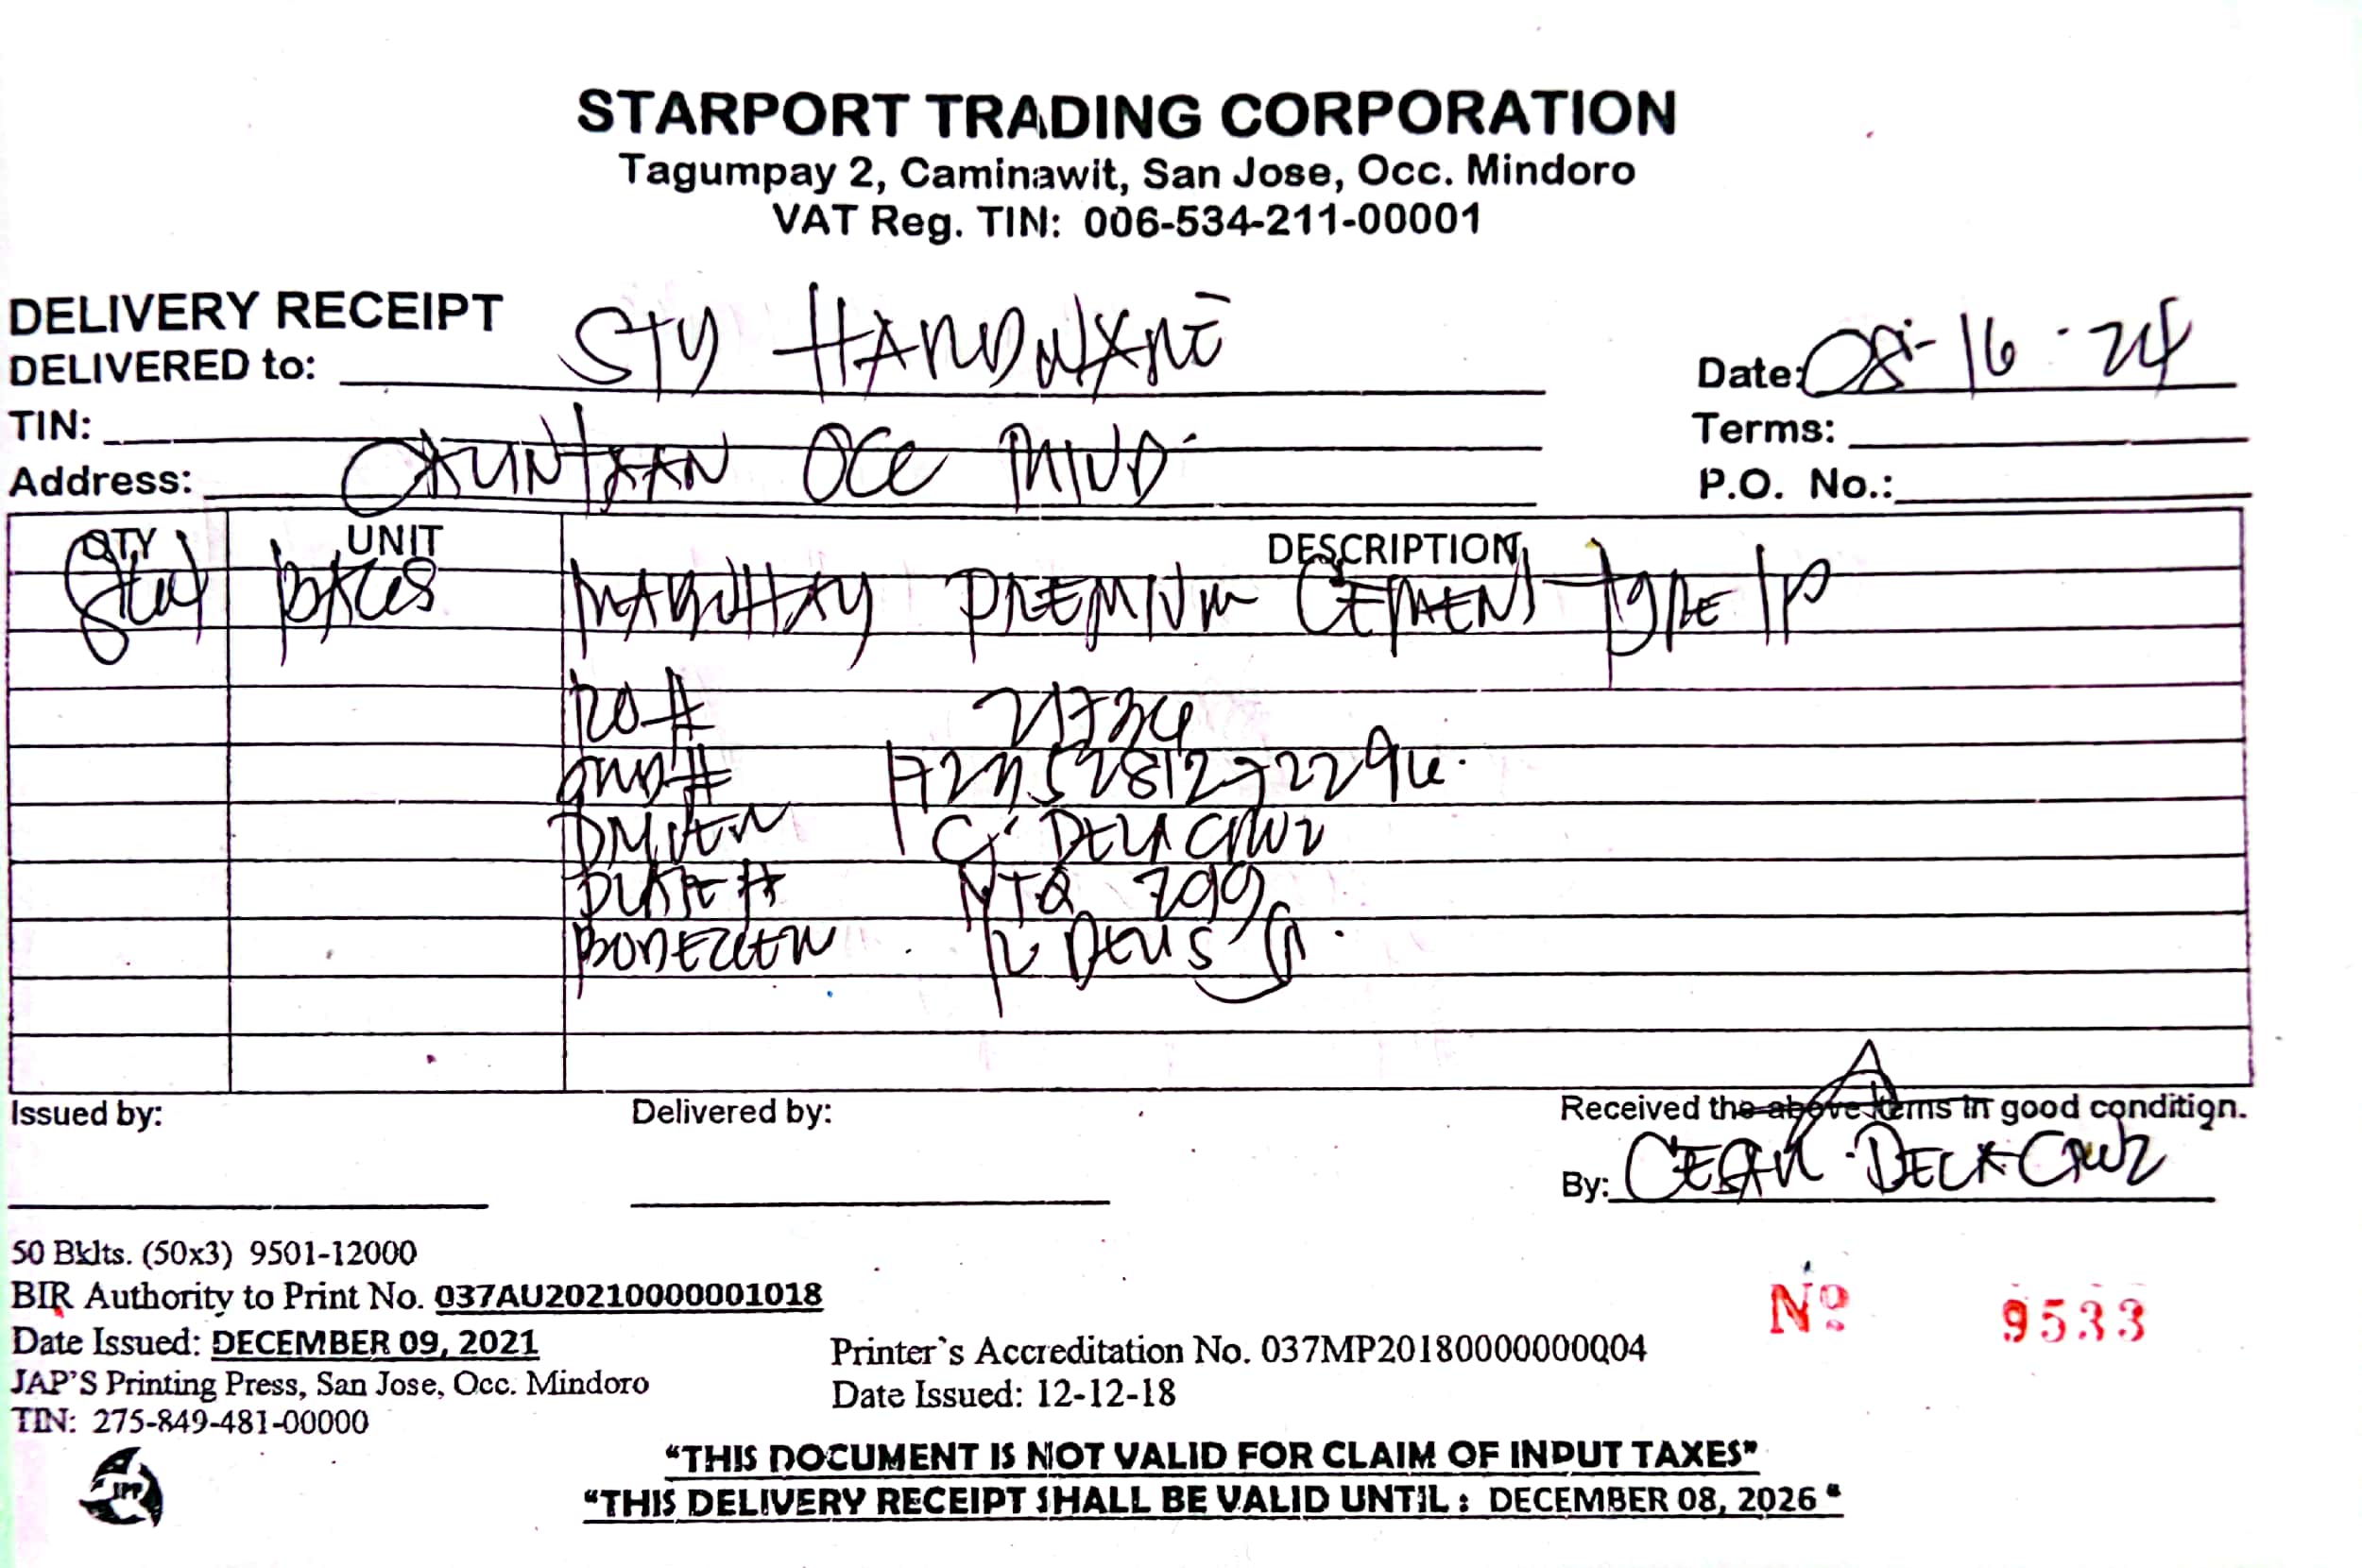 STARPORT TRADING CORPORATION
Tagumpay 2, Caminawit, San Jose, Occ. Mindoro
VAT Reg. TIN: 006-534-211-00001
DELIVERY RECEIPT
DELIVERED to: STY HARDWARE
Date: 08-16-24
TIN:
Terms:
Address: OCC MIND.
P.O. No.:
QTY UNIT DESCRIPTION
BAGS MABUHAY PREMIUM CEMENT TYPE 1P
PO# 21734
DRIVER C. DELA CRUZ
PLATE# NTQ 799
BODEGUERO
Issued by:
Delivered by:
Received the above items in good condition.
By: CESAR DELA CRUZ
50 Bklts. (50x3) 9501-12000
BIR Authority to Print No. 037AU20210000001018
Date Issued: DECEMBER 09, 2021
JAP'S Printing Press, San Jose, Occ. Mindoro
TIN: 275-849-481-00000
Printer's Accreditation No. 037MP20180000000004
Date Issued: 12-12-18
Nº 9533
JPP
"THIS DOCUMENT IS NOT VALID FOR CLAIM OF INPUT TAXES"
"THIS DELIVERY RECEIPT SHALL BE VALID UNTIL : DECEMBER 08, 2026"